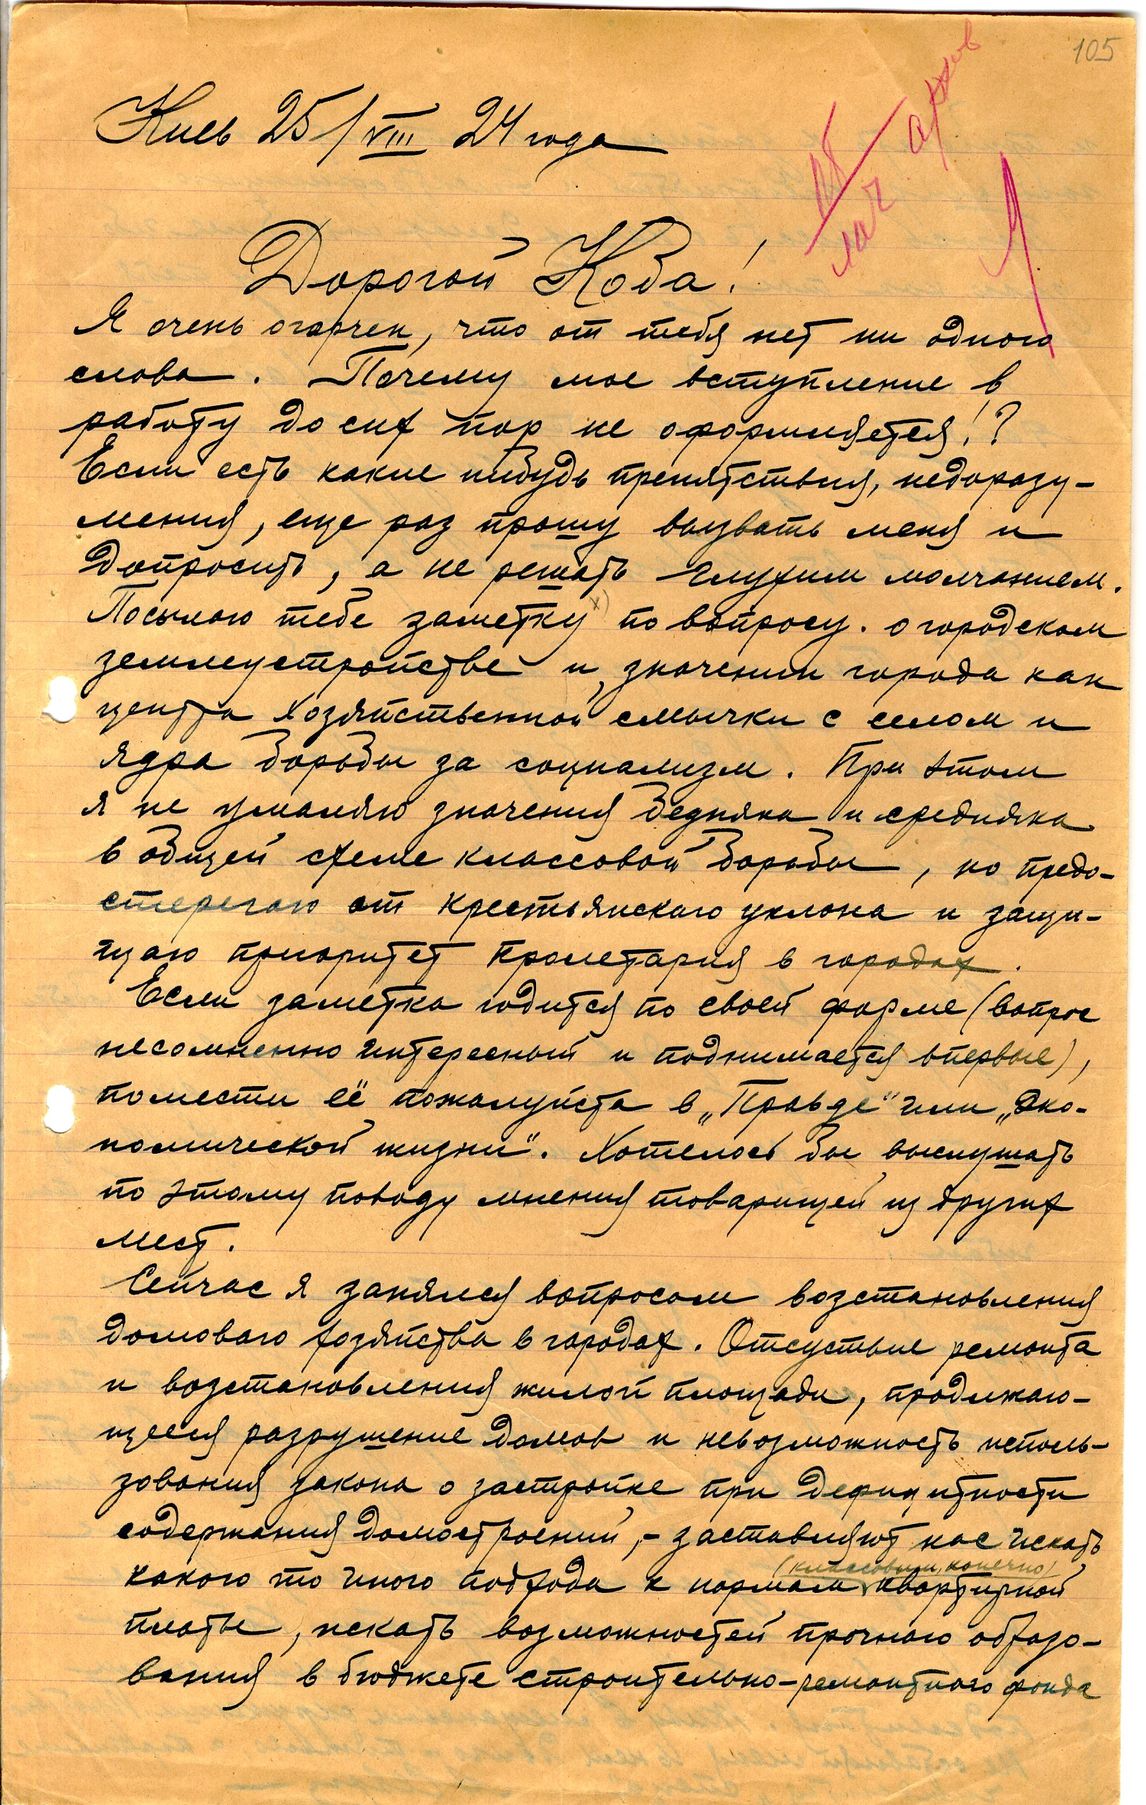 105
арх
Киев 25/VIII 24 года
Дорогой Коба!
Я очень огорчен, что от тебя нет ни одного
слова. Почему мое вступление в
работу до сих пор не оформляется!?
Если есть какие нибудь препятствия, недоразу-
мения, еще раз прошу вызвать меня и
допросить, а не решать глухим молчанием.
Посылаю тебе заметку х) по вопросу. о городском
землеустройстве и значении города как
центра хозяйственной смычки с селом и
ядра борьбы за социализм. При этом
я не умаляю значения бедняка и средняка
в общей схеме классовой борьбы, но предо-
стерегаю от крестьянского уклона и защи-
щаю приоритет пролетария в городах.
Если заметка годится по своей форме (вопрос
несомненно интересный и поднимается впервые),
помести её пожалуйста в „Правде" или „Эко-
номической жизни". Хотелось бы выслушать
по этому поводу мнения товарищей из других
мест.
Сейчас я занялся вопросом возстановления
домового хозяйства в городах. Отсуствие ремонта
и возстановления жилой площади, продлжаю-
щееся разрушение домов и невозможность исполь-
зования закона о застройке при дефицитности
содержания домостроений, – заставляют нас искать
(классовым, конечно)
какого то иного подхода к нормам квартирной
платы, искать возможностей прочного образо-
вания в бюджете строительно-ремонтного фонда